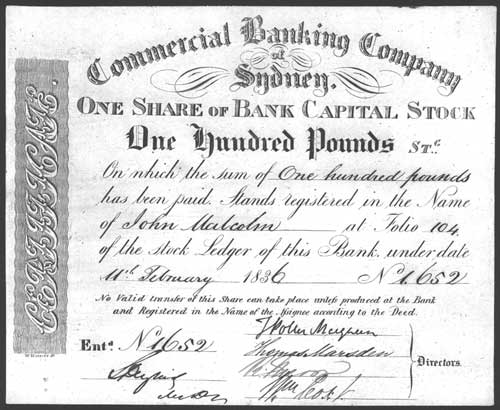 Commercial Banking Company
of
Sydney.
ONE SHARE OF BANK CAPITAL STOCK
One Hundred Pounds STG.
On which the sum of One hundred pounds
has been paid. Stands registered in the Name
of John Malcolm at Folio 104
of the stock Ledger of this Bank, under date
11th February 1836 No 1.652
No Valid transfer of this Share can take place unless produced at the Bank
and Registered in the Name of the Assignee according to the Deed.
Entd. No 1652
Thomas Marsden
Wm Cox
Directors.
CERTIFICATE.